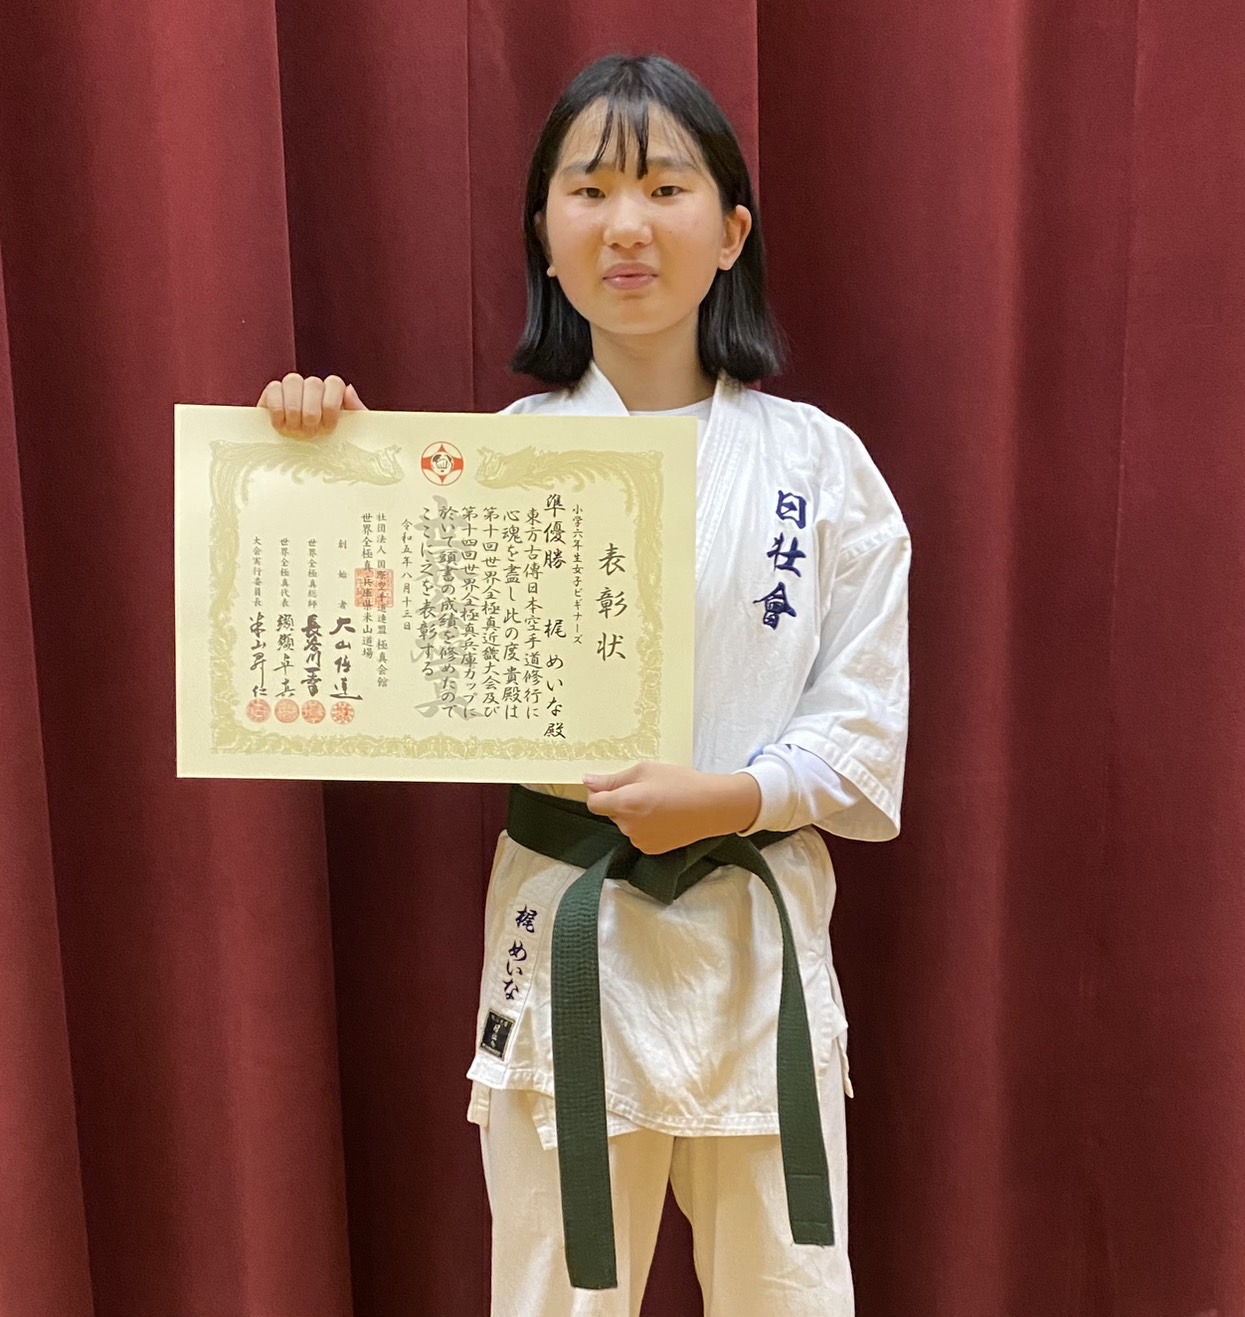 表彰状
小学六年生女子ビギナーズ
準優勝 梶 めいな殿
東方古傳日本空手道修行に
心魂を盡し此の度貴殿は
第十回世界全極真近畿大会及び
第十四回世界全極真兵庫カップに
於いて頭書の成績を修めたので
ここに之を表彰する
令和五年八月十三日
社団法人 国際空手道連盟 極真会館
世界全極真 兵庫県米山道場
創始者 大山倍達
世界全極真総師 長谷川一幸
世界全極真代表
大会実行委員長 米山昇仁
日壮會
梶 めいな